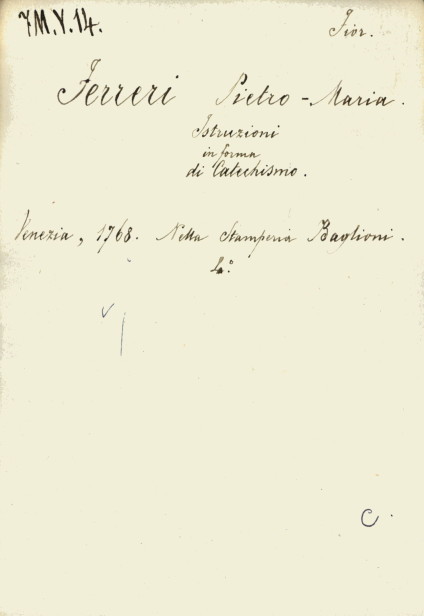 7M.Y.14.
Fior.
Ferreri Pietro - Maria.
Istruzioni
in forma
di Catechismo.
Venezia, 1768. Nella Stamperia Baglioni.
4.º
C.